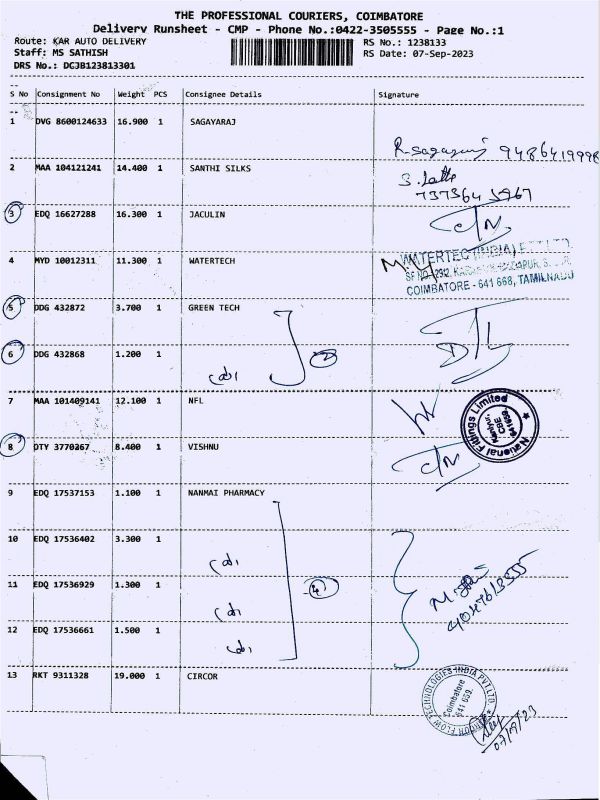 THE PROFESSIONAL COURIERS, COIMBATORE
Delivery Runsheet - CMP - Phone No.:0422-3505555 - Page No.:1
Route: KAR AUTO DELIVERY RS No.: 1238133
Staff: MS SATHISH RS Date: 07-Sep-2023
DRS No.: DCJB123813301
S No Consignment No Weight PCS Consignee Details Signature
1 DVG 8600124633 16.900 1 SAGAYARAJ
9486419998
2 MAA 104121241 14.400 1 SANTHI SILKS
737364 5967
3 EDQ 16627288 16.300 1 JACULIN
4 MYD 10012311 11.300 1 WATERTECH
WATERTEC (INDIA) PVT LTD.
COIMBATORE - 641 668, TAMILNADU
5 DDG 432872 3.700 1 GREEN TECH
6 DDG 432868 1.200 1
2
7 MAA 101409141 12.100 1 NFL
National Fittings Limited
8 DTY 3770267 8.400 1 VISHNU
9 EDQ 17537153 1.100 1 NANMAI PHARMACY
10 EDQ 17536402 3.300 1
11 EDQ 17536929 1.300 1
4
12 EDQ 17536661 1.500 1
13 RKT 9311328 19.000 1 CIRCOR
CIRCOR FLOW TECHNOLOGIES INDIA PVT LTD
Coimbatore
641 659.
07/9/23